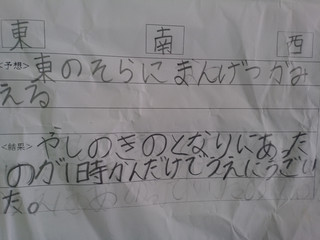 東 南 西
<予想> 東のそらにまんげつがみ
える
<結果> やしのきのとなりにあった
のが1時かんだけでうえにうごい
た。